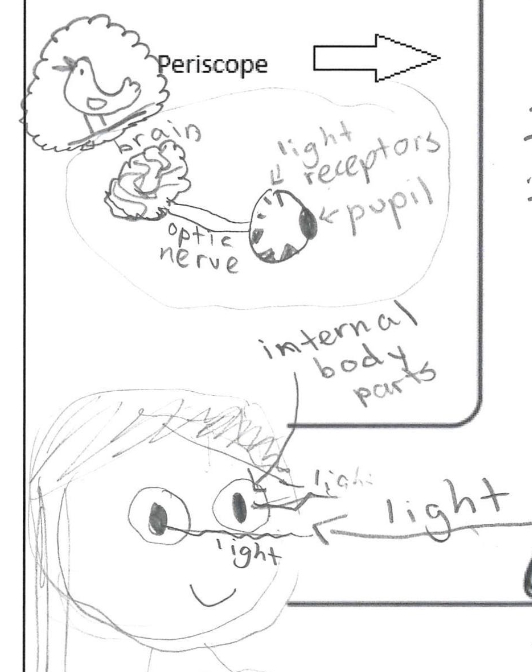 Periscope
brain
light
receptors
pupil
optic
nerve
internal
body
parts
light
light
light